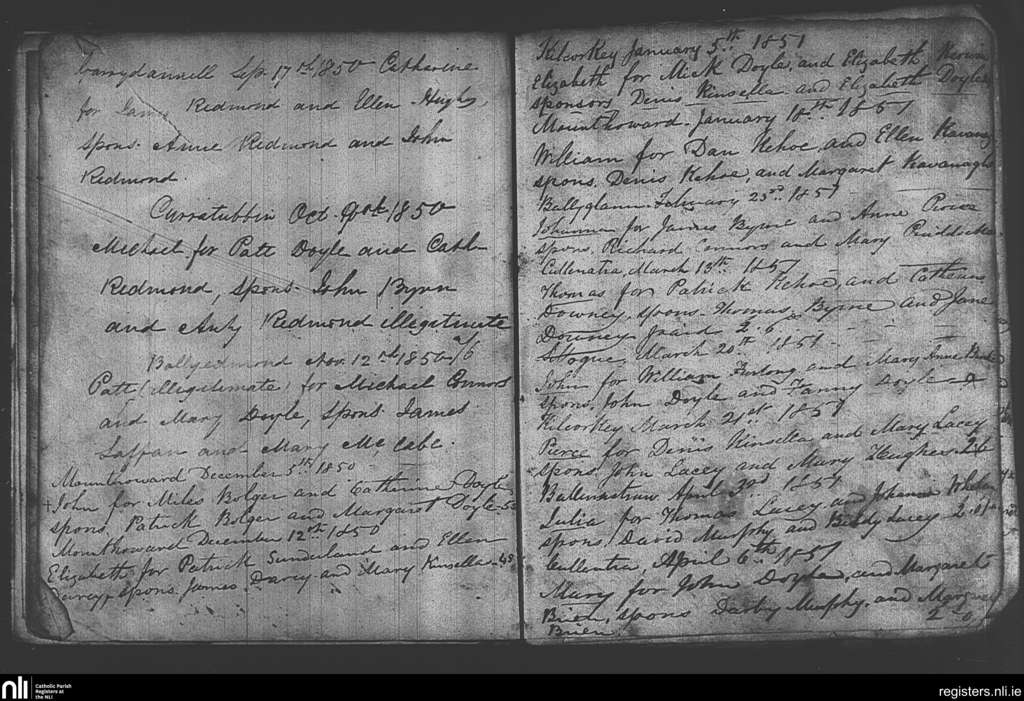 Sep. 17th 1850 Catharine
for James Redmond and Ellen Hughs,
spons. Anne Redmond and John
Redmond.
Curratubbin Oct. 1850
Michael for Patt Doyle and Cath-
Redmond, spons. John Byrn
and Anty Redmond illegitimate
Ballyedmond Nov. 12th 1850
Patt (illegitimate) for Michael Connors
and Mary Doyle, spons. James
Saffran and Mary Mc Cabe.
Mounthoward December 5th 1850
John for Miles Bolger and Catherine Doyle
spons. Patrick Bolger and Margaret Doyle
Mounthoward December 12th 1850
Elizabeth for Patrick Sunderland and Ellen
Darcy, spons. James Darcy and Mary Kinsella
Kilcorkey January 5th 1851
Elizabeth for Mick Doyle, and Elizabeth
sponsors Denis Kinsella and Elizabeth Doyle
Mounthoward January 18th 1851
William for Dan Kehoe, and Ellen
spons. Denis Kehoe, and Margaret Kavanagh
February 23rd 1851
Johanna for James Byrne and Anne
spons. Richard Connors and Mary
Cullentra, March 13th 1851
Thomas for Patrick Kehoe, and
Downey, spons. Thomas Byrne and Jane
Downey paid 2. 6
March 20th 1851
John for William Furlong and Mary Anne
spons. John Doyle and Fanny Doyle
Kilcorkey March 21st 1851
Pierce for Denis Kinsella and Mary Lacey
spons. John Lacey and Mary Hughes 2.6
Ballinastraw April 3rd 1851
Julia for Thomas Lacey, and Johanna
spons. David Murphy and Biddy Lacey 2.
Cullentra, April 6th 1851
Mary for John Doyle, and Margaret
Brien, spons Darby Murphy, and
Brien. 2 0
nli Catholic Parish
Registers at
the NLI
registers.nli.ie